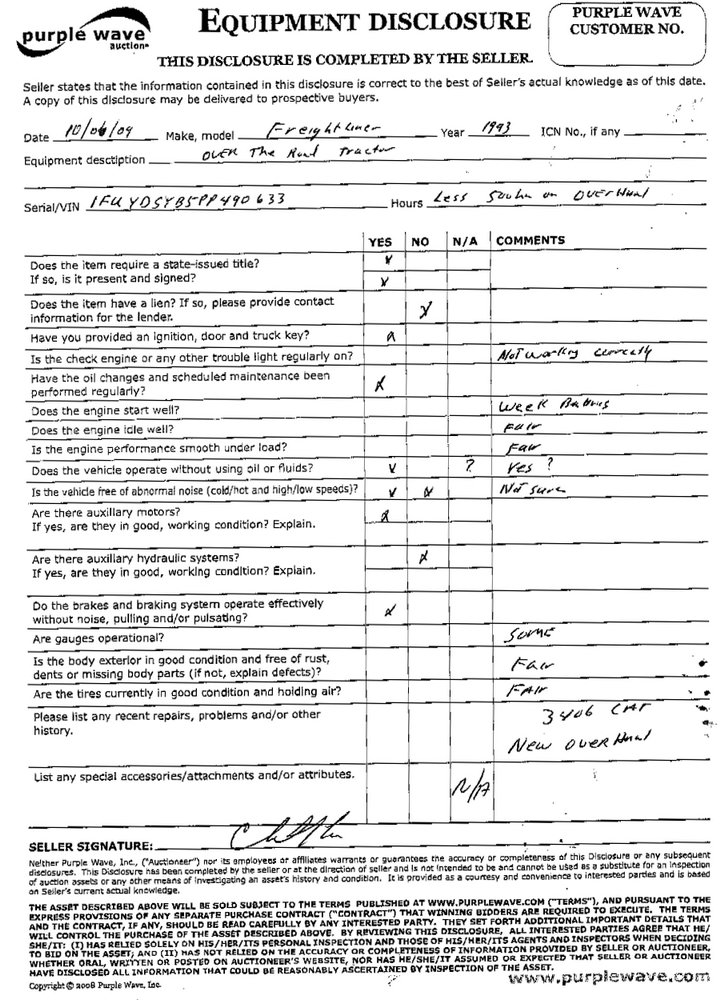 purple wave
auction®
EQUIPMENT DISCLOSURE
PURPLE WAVE
CUSTOMER NO.
THIS DISCLOSURE IS COMPLETED BY THE SELLER.
Seller states that the information contained in this disclosure is correct to the best of Seller's actual knowledge as of this date.
A copy of this disclosure may be delivered to prospective buyers.
Date 10/06/09 Make, model Freightliner Year 1993 ICN No., if any
Equipment desctiption OVER The Road Tractor
Serial/VIN 1FUYDSYB5PP490633 Hours Less 500hr on OverHaul
YES NO N/A COMMENTS
Does the item require a state-issued title?
If so, is it present and signed?
Does the item have a lien? If so, please provide contact
information for the lender.
Have you provided an ignition, door and truck key?
Is the check engine or any other trouble light regularly on? Not working correctly
Have the oil changes and scheduled maintenance been
performed regularly?
Does the engine start well? Week
Does the engine idle well? Fair
Is the engine performance smooth under load? Fair
Does the vehicle operate without using oil or fluids? ? Yes ?
Is the vehicle free of abnormal noise (cold/hot and high/low speeds)? Not sure
Are there auxillary motors?
If yes, are they in good, working condition? Explain.
Are there auxillary hydraulic systems?
If yes, are they in good, working condition? Explain.
Do the brakes and braking system operate effectively
without noise, pulling and/or pulsating?
Are gauges operational? Some
Is the body exterior in good condition and free of rust,
dents or missing body parts (if not, explain defects)? Fair
Are the tires currently in good condition and holding air? FAIR
Please list any recent repairs, problems and/or other
history.
3406 CAT
New OverHaul
List any special accessories/attachments and/or attributes. N/A
SELLER SIGNATURE:
Neither Purple Wave, Inc., ("Auctioneer") nor its employees or affiliates warrants or guarantees the accuracy or completeness of this Disclosure or any subsequent
disclosures. This Disclosure has been completed by the seller or at the direction of seller and is not intended to be and cannot be used as a substitute for an inspection
of auction assets or any other means of investigating an asset's history and condition. It is provided as a courtesy and convenience to interested parties and is based
on Seller's current actual knowledge.
THE ASSET DESCRIBED ABOVE WILL BE SOLD SUBJECT TO THE TERMS PUBLISHED AT WWW.PURPLEWAVE.COM ("TERMS"), AND PURSUANT TO THE
EXPRESS PROVISIONS OF ANY SEPARATE PURCHASE CONTRACT ("CONTRACT") THAT WINNING BIDDERS ARE REQUIRED TO EXECUTE. THE TERMS
AND THE CONTRACT, IF ANY, SHOULD BE READ CAREFULLY BY ANY INTERESTED PARTY. THEY SET FORTH ADDITIONAL IMPORTANT DETAILS THAT
WILL CONTROL THE PURCHASE OF THE ASSET DESCRIBED ABOVE. BY REVIEWING THIS DISCLOSURE, ALL INTERESTED PARTIES AGREE THAT HE/
SHE/IT: (I) HAS RELIED SOLELY ON HIS/HER/ITS PERSONAL INSPECTION AND THOSE OF HIS/HER/ITS AGENTS AND INSPECTORS WHEN DECIDING
TO BID ON THE ASSET; AND (II) HAS NOT RELIED ON THE ACCURACY OR COMPLETENESS OF INFORMATION PROVIDED BY SELLER OR AUCTIONEER,
WHETHER ORAL, WRITTEN OR POSTED ON AUCTIONEER'S WEBSITE, NOR HAS HE/SHE/IT ASSUMED OR EXPECTED THAT SELLER OR AUCTIONEER
HAVE DISCLOSED ALL INFORMATION THAT COULD BE REASONABLY ASCERTAINED BY INSPECTION OF THE ASSET.
Copyright © 2008 Purple Wave, Inc.
www.purplewave.com